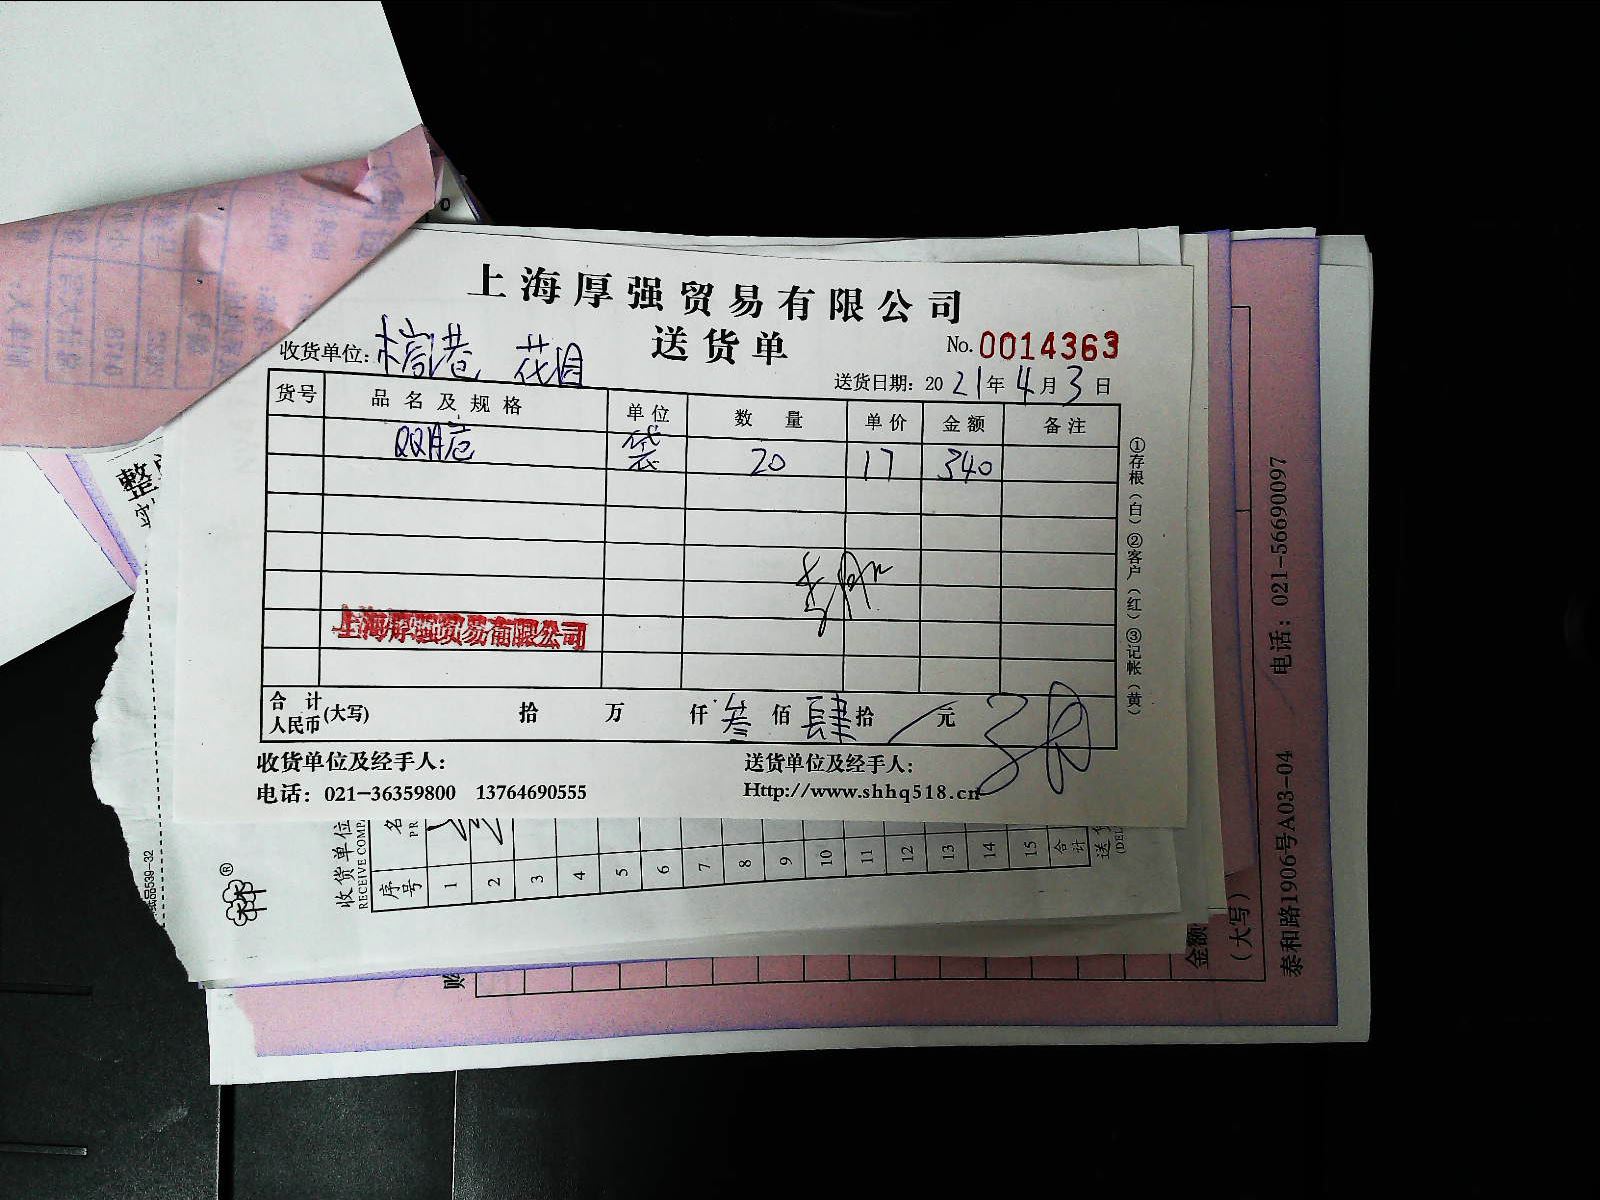 上海厚强贸易有限公司
送货单
No.0014363
收货单位: 花园
送货日期: 2021年4月3日
货号 品名及规格 单位 数量 单价 金额 备注
QQ 袋 20 17 340
上海厚强贸易有限公司
合计人民币(大写) 拾 万 仟 叁 佰 肆 拾 元
①存根(白)②客户(红)③记帐(黄)
收货单位及经手人:
送货单位及经手人:
电话: 021-36359800 13764690555
Http://www.shhq518.cn
收货单位
RECEIVE COMP
序号 1 2 3 4 5 6 7 8 9 10 11 12 13 14 15 合计
名
PR
送货
(DEL
纸品539-32
整
金额
(大写)
泰和路1906号A03-04 电话: 021-56690097